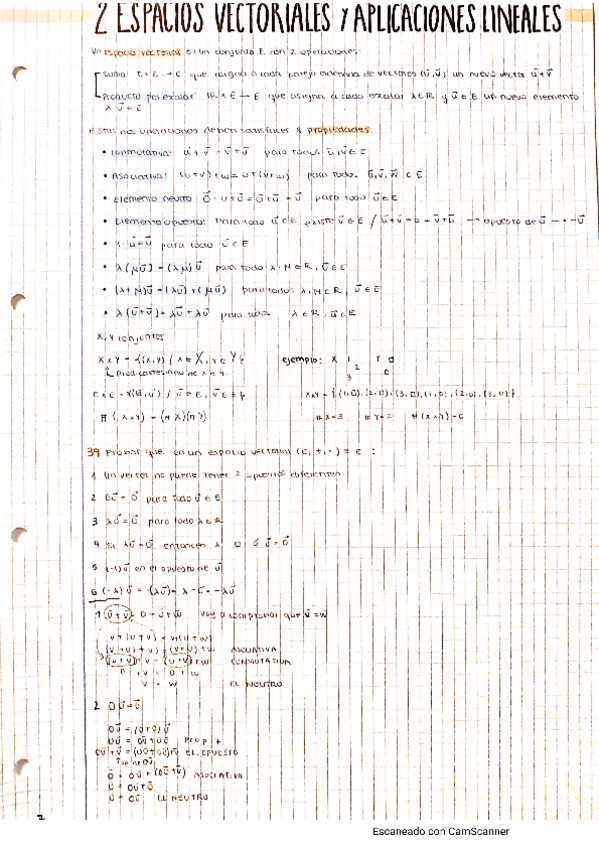 2 ESPACIOS VECTORIALES Y APLICACIONES LINEALES
Un espacio vectorial es un conjunto E con 2 operaciones:
Suma: E × E → E que asigna a cada pareja ordenada de vectores (u⃗,v⃗) un nuevo vector u⃗+v⃗
Producto por escalar: ℝ × E → E que asigna a cada escalar λ∈ℝ y u⃗∈E un nuevo elemento
λu⃗∈E
Estas dos operaciones deben satisfacer 8 propiedades:
• Conmutativa: u⃗+v⃗ = v⃗+u⃗ para todo u⃗,v⃗∈E
• Asociativa: (u+v)+w = u+(v+w) para todo u⃗,v⃗,w⃗ ∈E
• Elemento neutro: 0⃗ u+0 = 0⃗+u⃗ = u⃗ para todo u⃗∈E
• Elemento opuesto: Para todo u⃗∈E existe v⃗∈E / u⃗+v⃗=0=v⃗+u⃗ → opuesto de u⃗ = -u⃗
• 1·u⃗=u⃗ para todo u⃗∈E
• λ(μu⃗) = (λμ)u⃗ para todo λ,μ∈ℝ, u⃗∈E
• (λ+μ)u⃗ = (λu⃗)+(μu⃗) para todo λ,μ∈ℝ, u⃗∈E
• λ(u⃗+v⃗) = λu⃗+λv⃗ para todo λ∈ℝ, u⃗∈E
X,Y conjuntos
X×Y = {(x,y) / x∈X, y∈Y} ejemplo: X 1 2 3 Y □ 0
prod. cartesiano de X e Y.
E×E = {(u⃗,v⃗) / u⃗∈E, v⃗∈E}
# (X×Y) = (#X)(#Y) #X=3 #Y=2 #(X×Y)=6
39 Probar que en un espacio vectorial (E,+,·) = E :
1 Un vector no puede tener 2 opuestos diferentes
2 0u⃗=0⃗ para todo u⃗∈E
3 λ0⃗=0⃗ para todo λ∈ℝ
4 Si λu⃗=0⃗ entonces λ=0 ó u⃗=0⃗
5 (-1)u⃗ es el opuesto de u⃗
6 (-λ)u⃗ = -(λu⃗) = λ·(-u⃗) = -λu⃗
1 u⃗+v⃗ = 0 = u⃗+w⃗ Voy a comprobar que v⃗=w⃗
v+(u+v) = v+(u+w)
(v+u)+v = (v+u)+w ASOCIATIVA
(u+v)+v = (u+v)+w CONMUTATIVA
0+v = 0+w
v = w EL NEUTRO
2 0u⃗=0⃗
0u⃗ = (0+0)u⃗
0u⃗ = 0u⃗+0u⃗ PROP 7
0u⃗+v⃗ = (0u⃗+0u⃗)+v⃗ EL OPUESTO
0⃗ = 0u⃗+(0u⃗+v⃗) ASOCIATIVA
0⃗ = 0u⃗+0⃗
0⃗ = 0u⃗ EL NEUTRO
Escaneado con CamScanner